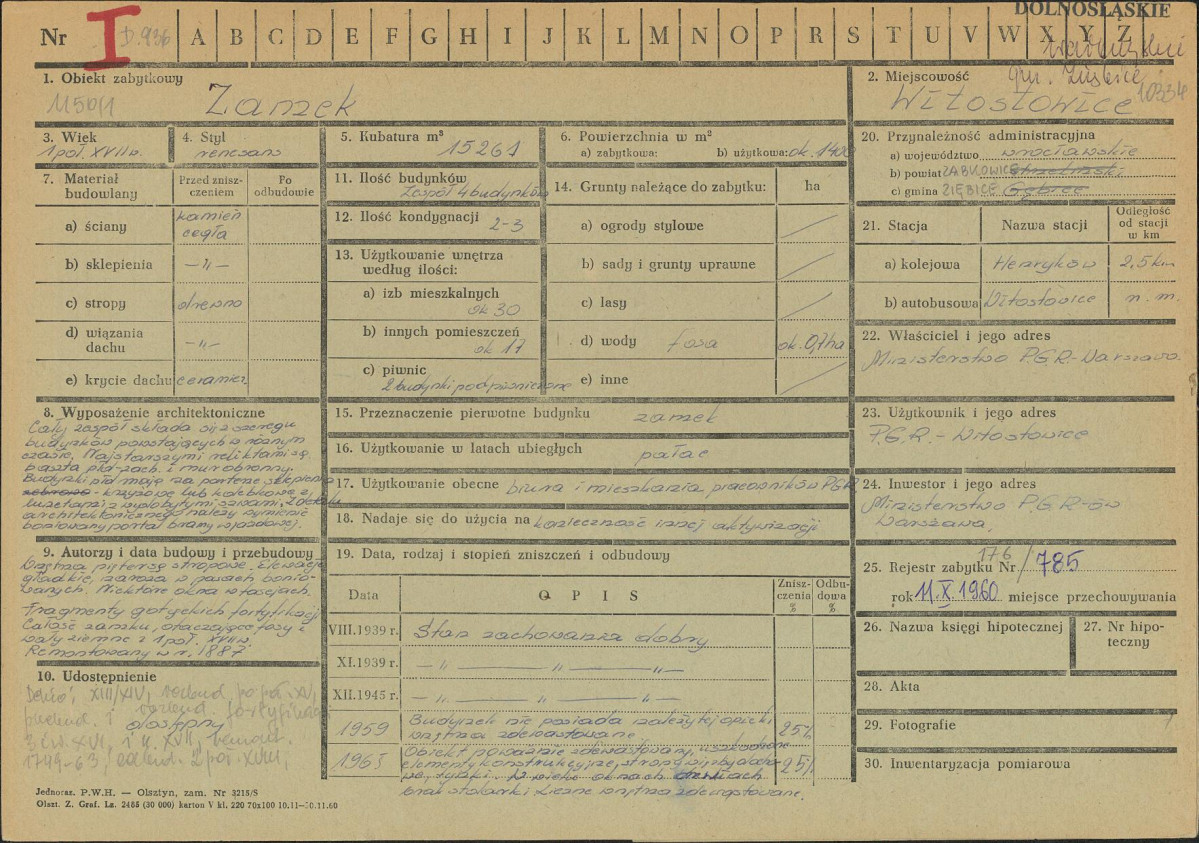 DOLNOŚLĄSKIE
Nr I D.936 A B C D E F G H I J K L M N O P R S T U V W X Y Z
wałbrzyskie
gm. Ziębice
1. Obiekt zabytkowy
1150/1
Zamek
2. Miejscowość
Witostowice
10334
3. Wiek
1 poł. XVII w.
4. Styl
renesans
5. Kubatura m³
15261
6. Powierzchnia w m²
a) zabytkowa: b) użytkowa: ok. 1400
7. Materiał budowlany
Przed zniszczeniem
Po odbudowie
a) ściany kamień cegła
b) sklepienia —„—
c) stropy drewno
d) wiązania dachu —„—
e) krycie dachu ceramicz.
11. Ilość budynków
Zespół 4 budynków
12. Ilość kondygnacji
2-3
13. Użytkowanie wnętrza według ilości:
a) izb mieszkalnych
ok 30
b) innych pomieszczeń
ok 17
c) piwnic
2 budynki podpiwniczone
14. Grunty należące do zabytku: ha
a) ogrody stylowe
b) sady i grunty uprawne
c) lasy
d) wody fosa ok. 0,7ha
e) inne
20. Przynależność administracyjna
a) województwo wrocławskie
b) powiat ZĄBKOWICE Strzeliński
c) gmina ZIĘBICE
21. Stacja Nazwa stacji Odległość od stacji w km
a) kolejowa Henryków 2,5 km
b) autobusowa Witostowice n. m.
22. Właściciel i jego adres
Ministerstwo P.G.R.-Warszawa.
8. Wyposażenie architektoniczne
Cały zespół składa się z szeregu
budynków powstających w różnym
czasie. Najstarszymi reliktami są
baszta płd-zach. i mur obronny.
Budynki płd mają na parterze sklepienia
żebrowe - krzyżowe lub kolebkowe z
lunetami z wydobytymi szwami, z detalu
architektonicznego należy wymienić
boniowany portal bramy wjazdowej.
9. Autorzy i data budowy i przebudowy
Wnętrza piętersą stropowe. Elewacje
gładkie, naroża w pasach bonio-
wanych. Niektóre okna w fasjach.
Fragmenty gotyckich fortyfikacji
Całość zamku, otaczające fosy i
wały ziemne z 1 poł. XVII w
Remontowany w r. 1887
10. Udostępnienie
XIII/XIV, rozbud. po poł. XV,
przebud. i rozbud. fortyfikacji
dostępny
3 ćw. XVI, i k. XVII, remont.
1749-63, odbud. 2 poł. XVIII,
15. Przeznaczenie pierwotne budynku zamek
16. Użytkowanie w latach ubiegłych pałac
17. Użytkowanie obecne biura i mieszkania pracowników PGR
18. Nadaje się do użycia na konieczność innej aktywizacji
19. Data, rodzaj i stopień zniszczeń i odbudowy
Data OPIS Zniszczenia % Odbudowa %
VIII.1939 r. Stan zachowania dobry
XI.1939 r. —„— —„— —„—
XII.1945 r. —„— —„— —„—
1959 Budynek nie posiada należytej opieki
wnętrza zdewastowane 25%
1963 Obiekt poważnie zdewastowany, uszkodzone
elementy konstrukcyjne, stropy więźby dacho-
we, tynki. W wielu oknach drzwiach 25%
brak stolarki liczne wnętrza zdewastowane.
23. Użytkownik i jego adres
P.G.R. - Witostowice
24. Inwestor i jego adres
Ministerstwo P.G.R-ów
Warszawa.
25. Rejestr zabytku Nr 176/785
rok 11.X.1960 miejsce przechowywania
26. Nazwa księgi hipotecznej
27. Nr hipoteczny
28. Akta
29. Fotografie 1
30. Inwentaryzacja pomiarowa
Jednoraz. P.W.H. — Olsztyn, zam. Nr 3215/S
Olszt. Z. Graf. Lz. 2485 (30 000) karton V kl. 220 70x100 10.11—30.11.60